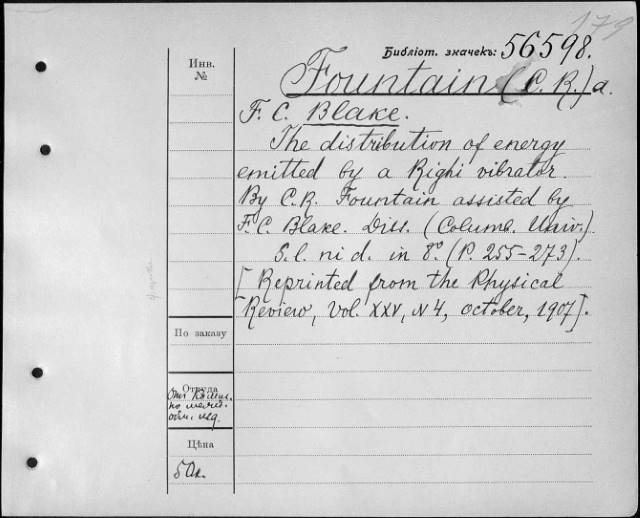 179
Библіот. значекъ: 56598.
Инв.
№
Fountain (C. R.) a.
F. C. Blake.
The distribution of energy
emitted by a Righi vibrator.
By C. R. Fountain assisted by
F. C. Blake. Diss. (Columb. Univ.).
S. l. ni d. in 8°. (P. 255-273).
[Reprinted from the Physical
Review, Vol. XXV, N 4, october, 1907].
По заказу
Откуда
Отъ
по
изд.
Цѣна
50к.